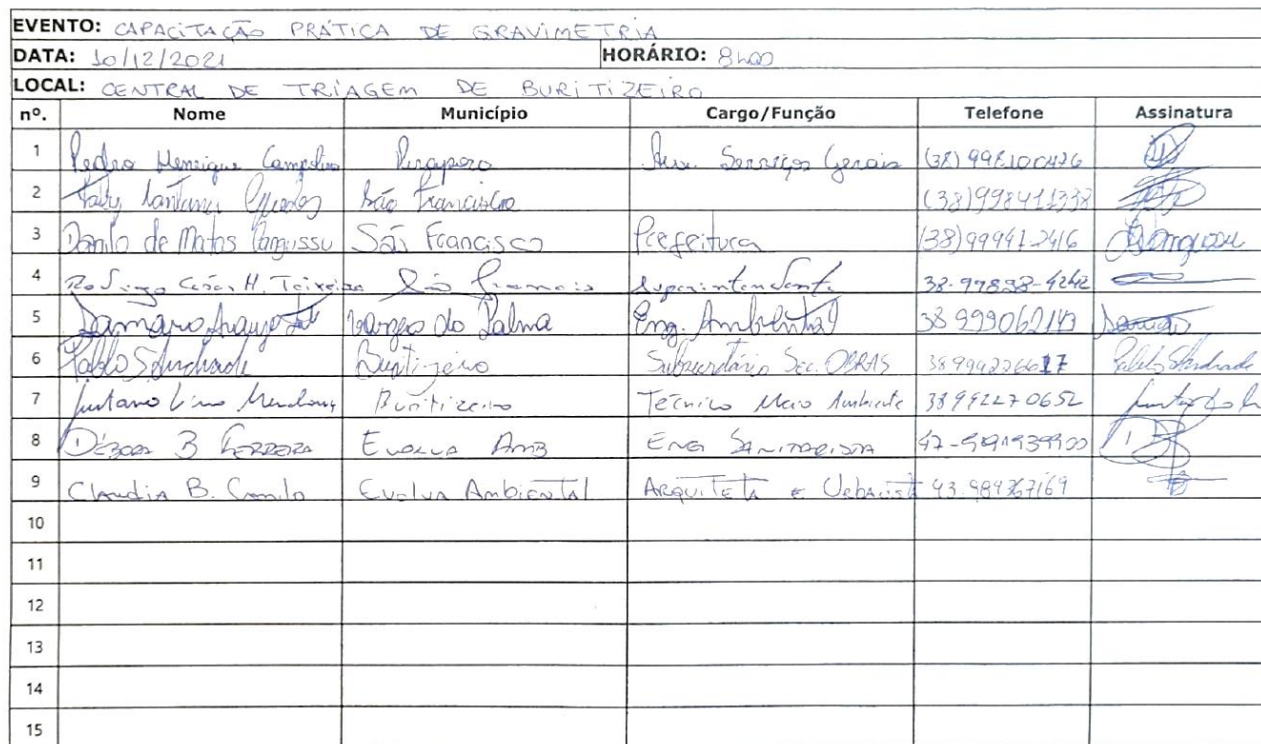 EVENTO: CAPACITAÇÃO PRÁTICA DE GRAVIMETRIA
DATA: 10/12/2021 HORÁRIO: 8h00
LOCAL: CENTRAL DE TRIAGEM DE BURITIZEIRO
nº. Nome Município Cargo/Função Telefone Assinatura
1 Pedro Henrique Campolina Pirapora Aux. Serviços Gerais
2 Santana Guedes São Francisco (38)998411338
3 Danilo de Matos Cangussu São Francisco Prefeitura (38)99941-2416 Cangussu
4 Rodrigo César H. Teixeira São Francisco Superintendente 38-99838-4242
5 Araujo Várzea da Palma Eng. Ambiental 38 999062143
6 Pablo S Andrade Buritizeiro Subsecretário Sec. OBRAS Pablo S Andrade
7 Gustavo Lima Mendonça Buritizeiro Técnico Meio Ambiente 38992270652
8 Débora B Ferreira Evolua Amb Eng Sanitarista
9 Claudia B. Camilo Evolua Ambiental Arquiteta e Urbanista 43.984367169
10
11
12
13
14
15